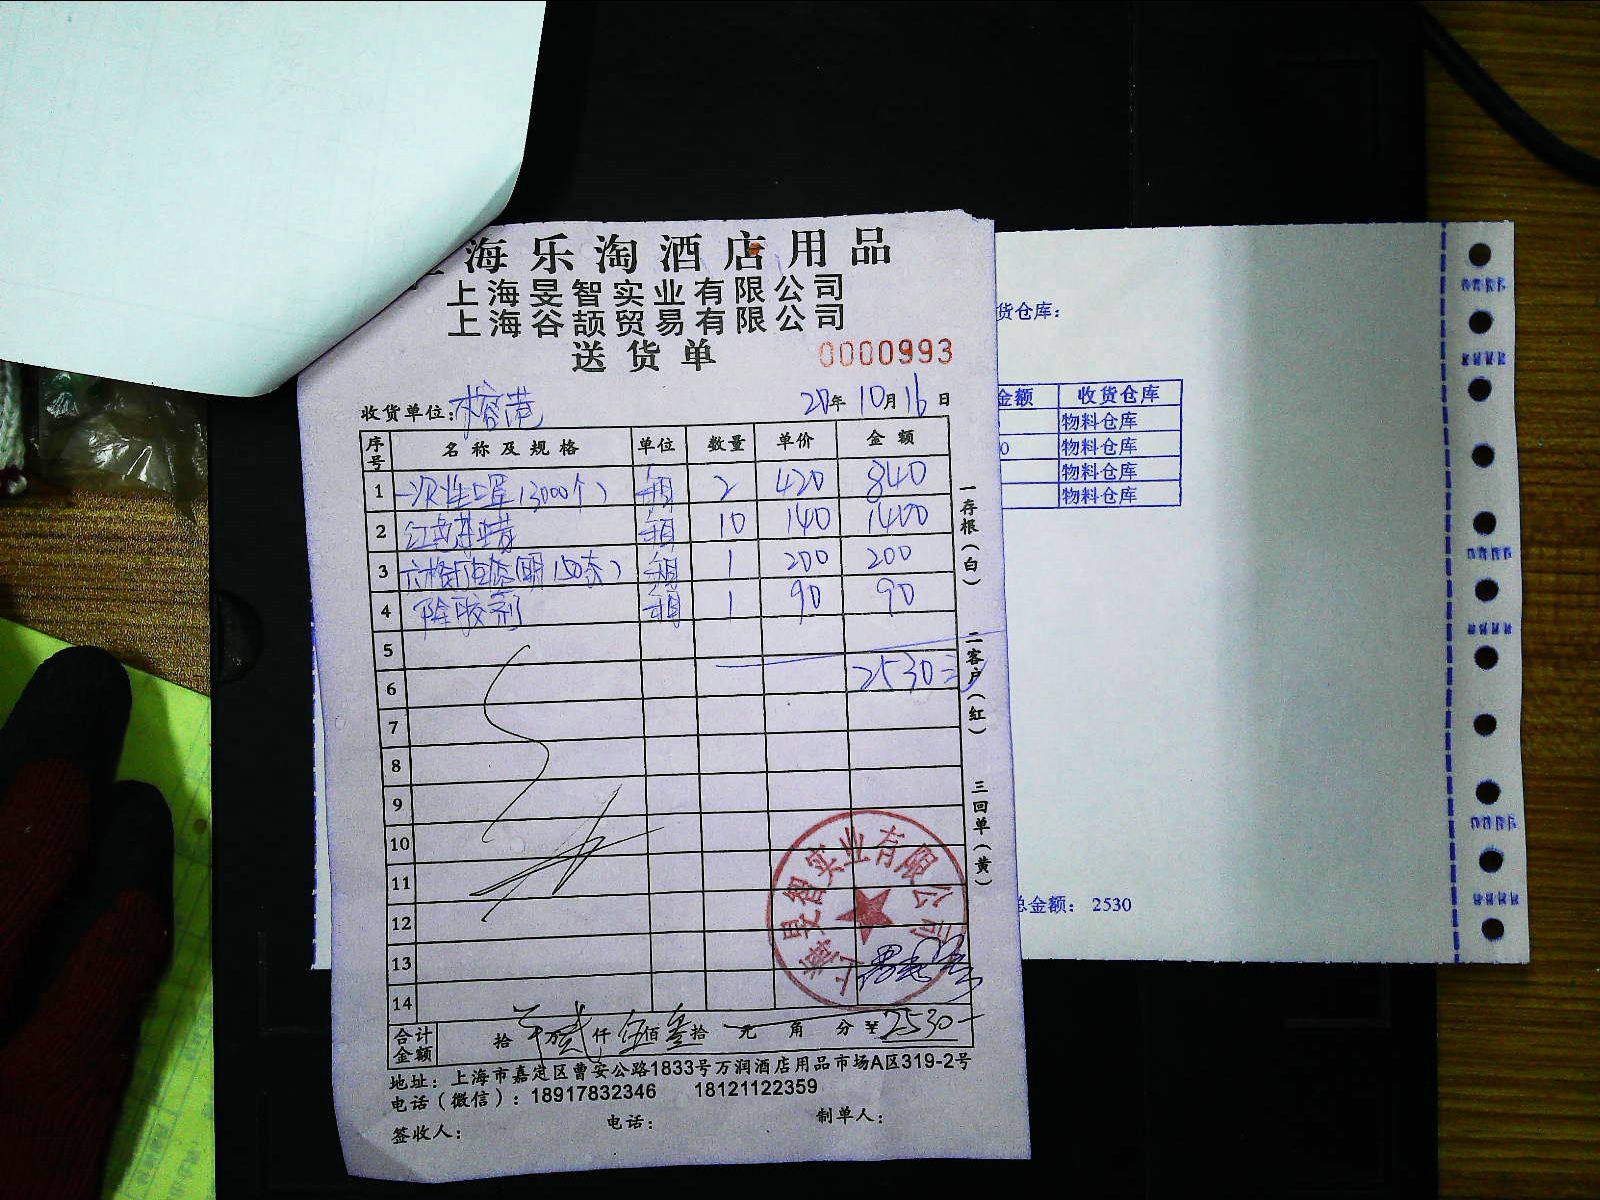 海乐淘酒店用品
上海旻智实业有限公司
上海谷颉贸易有限公司
送货单 0000993
收货单位: 木容港 20年10月16日
序号 名称及规格 单位 数量 单价 金额
1 一次性口罩(3000个) 箱 2 420 840
2 箱 10 140 1400
3 箱 1 200 200
4 除胶剂 箱 1 90 90
5
6 2530
7
8
9
10
11
12
13
14
合计金额 拾 万贰仟伍佰叁拾 元 角 分 ¥2530
地址:上海市嘉定区曹安公路1833号万润酒店用品市场A区319-2号
电话(微信):18917832346 18121122359
签收人: 电话: 制单人:
一存根(白)
二客户(红)
三回单(黄)
上海旻智实业有限公司
货仓库:
金额 收货仓库
物料仓库
0 物料仓库
物料仓库
物料仓库
总金额: 2530